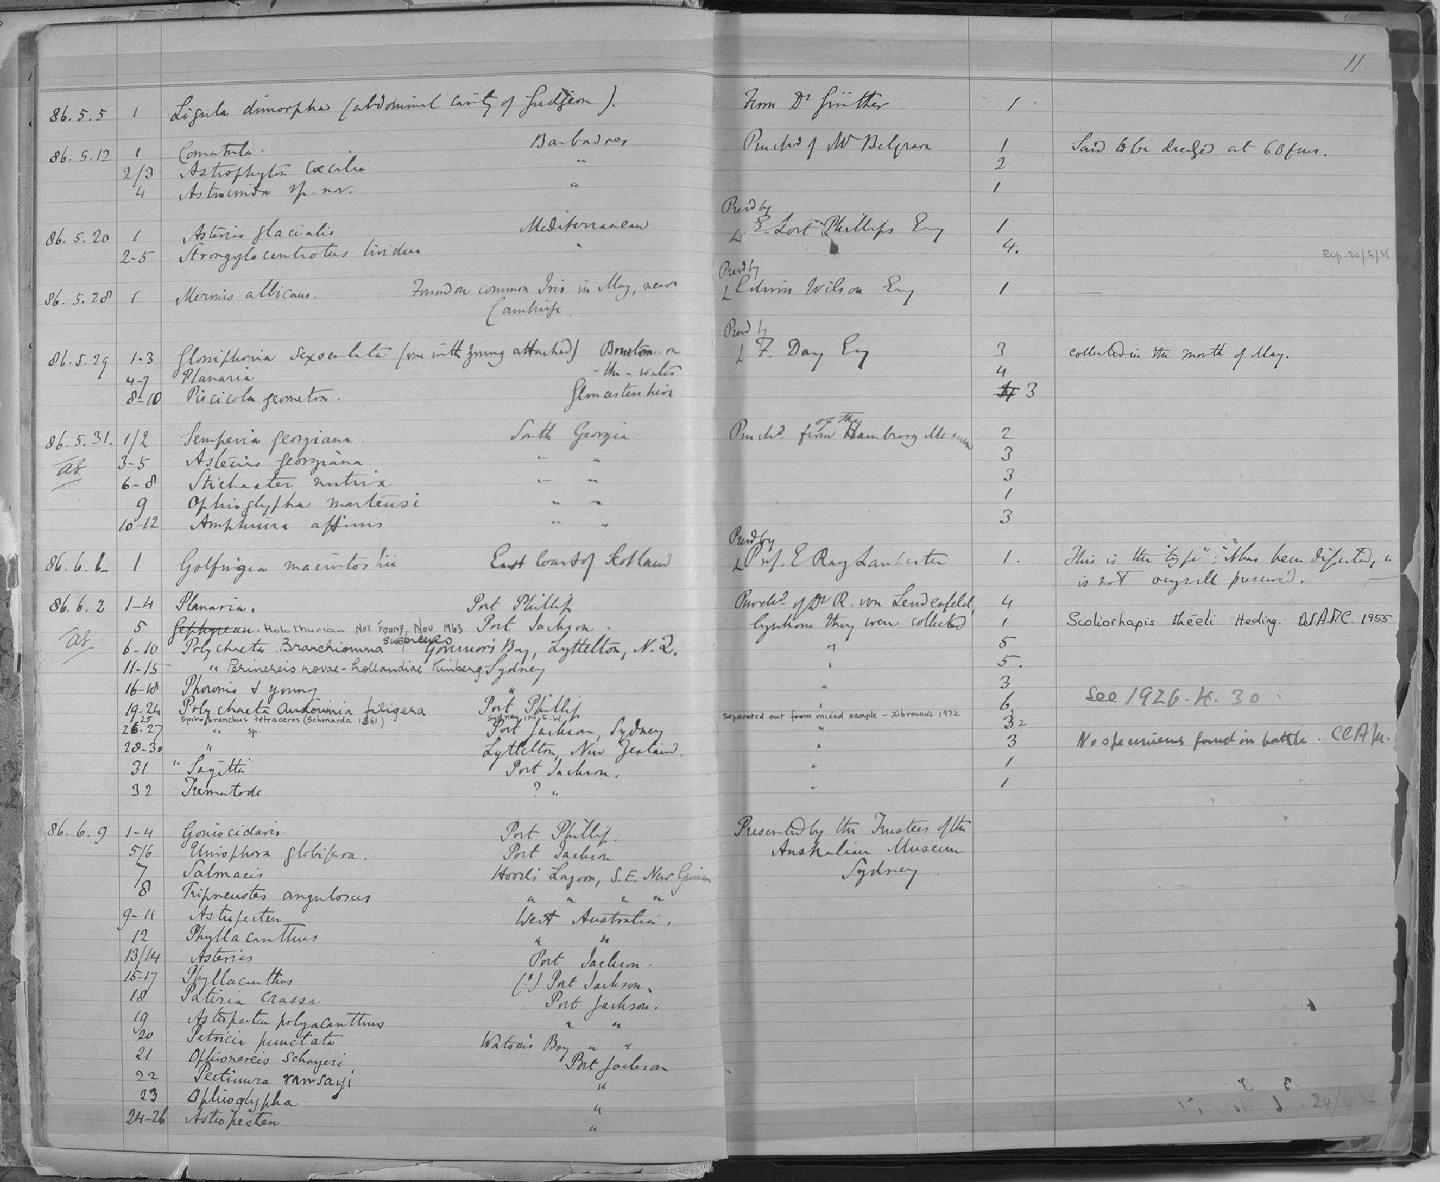 11.
86.5.5 1 Ligula dimorpha (abdominal cavity of Gudgeon). From Dr Günther 1
86.5.12 1 Comatula. Barbadoes Purchd of Mr Belgrave 1 Said to be dredged at 60 fms.
2/3 Astrophyton caecilia " 2
4 Astrocnida sp. nov. " 1
Presd by
86.5.20 1 Asterias glacialis Mediterranean E. Lort Phillips Esq 1
2-5 Strongylocentrotus lividus " 4.
Rep. 20/5/86
Presd by
86.5.28 1 Mermis albicans. Found on common Iris in May, near Edwin Wilson Esq 1
Cambridge
Presd by
86.5.29 1-3 Glossiphonia sexoculata (one with young attached) Bourton-on F. Day Esq 3 collected in the month of May.
4-7 Planaria -the-water 4
8-10 Piscicola geometra. Gloucestershire 3
86.5.31. 1/2 Semperia georgiana South Georgia Purchd. from the Hamburg Museum 2
as. 3-5 Asterias georgiana " " 3
6-8 Stichaster nutrix " " 3
9 Ophioglypha martensi " " 1
10-12 Amphiura affinis " " 3
Presd by
86.6.1 1 Golfingia macintoshii East Coast of Scotland Prof. E Ray Lankester 1. This is the "type": It has been dissected, &
is not very well preserved.
86.6.2 1-4 Planaria. Port Phillip Purchd. of Dr R. von Lendenfeld, 4
5 Gephyrean. Holothurian Not Young, Nov 1963 Port Jackson. by whom they were collected 1 Scoliorhapis theeli Heding. 1955
as. 6-10 Polychaeta Branchiomma suspiciens Governor's Bay, Lyttelton, N.Z. " 5
11-15 " Perinereis novae-hollandiae Kinberg. Sydney " 5.
16-18 Phoronis & young " " 3
19-24 Polychaeta Audouinia filigera Port Phillip " 6 See 1926.4.30
25 Spirobranchus tetraceros (Schmarda 1861) Sydney, N.S.W. separated out from mixed sample - Zibrowius 1972
26-27 " sp. Port Jackson, Sydney " 2
28-30 " Lyttelton, New Zealand. " 3 No specimens found in bottle.
31 " Sagitta Port Jackson. " 1
32 Trematode ? " " 1
86.6.9 1-4 Goniocidaris Port Phillip. Presented by the Trustees of the
5/6 Uniophora globifera. Port Jackson Australian Museum
7 Salmacis Hood's Lagoon, S.E. New Guinea Sydney.
8 Tripneustes angulosus " " " "
9-11 Astropecten West Australia.
12 Phyllacanthus " "
13/14 Asterias Port Jackson.
15-17 Phyllacanthus (?) Port Jackson.
18 Patiria crassa Port Jackson.
19 Astropecten polyacanthus " "
20 Petricia punctata Watson's Bay " "
21 Ophionereis schayeri Port Jackson
22 Pectinura ramsayi "
23 Ophioglypha "
24-26 Astropecten "